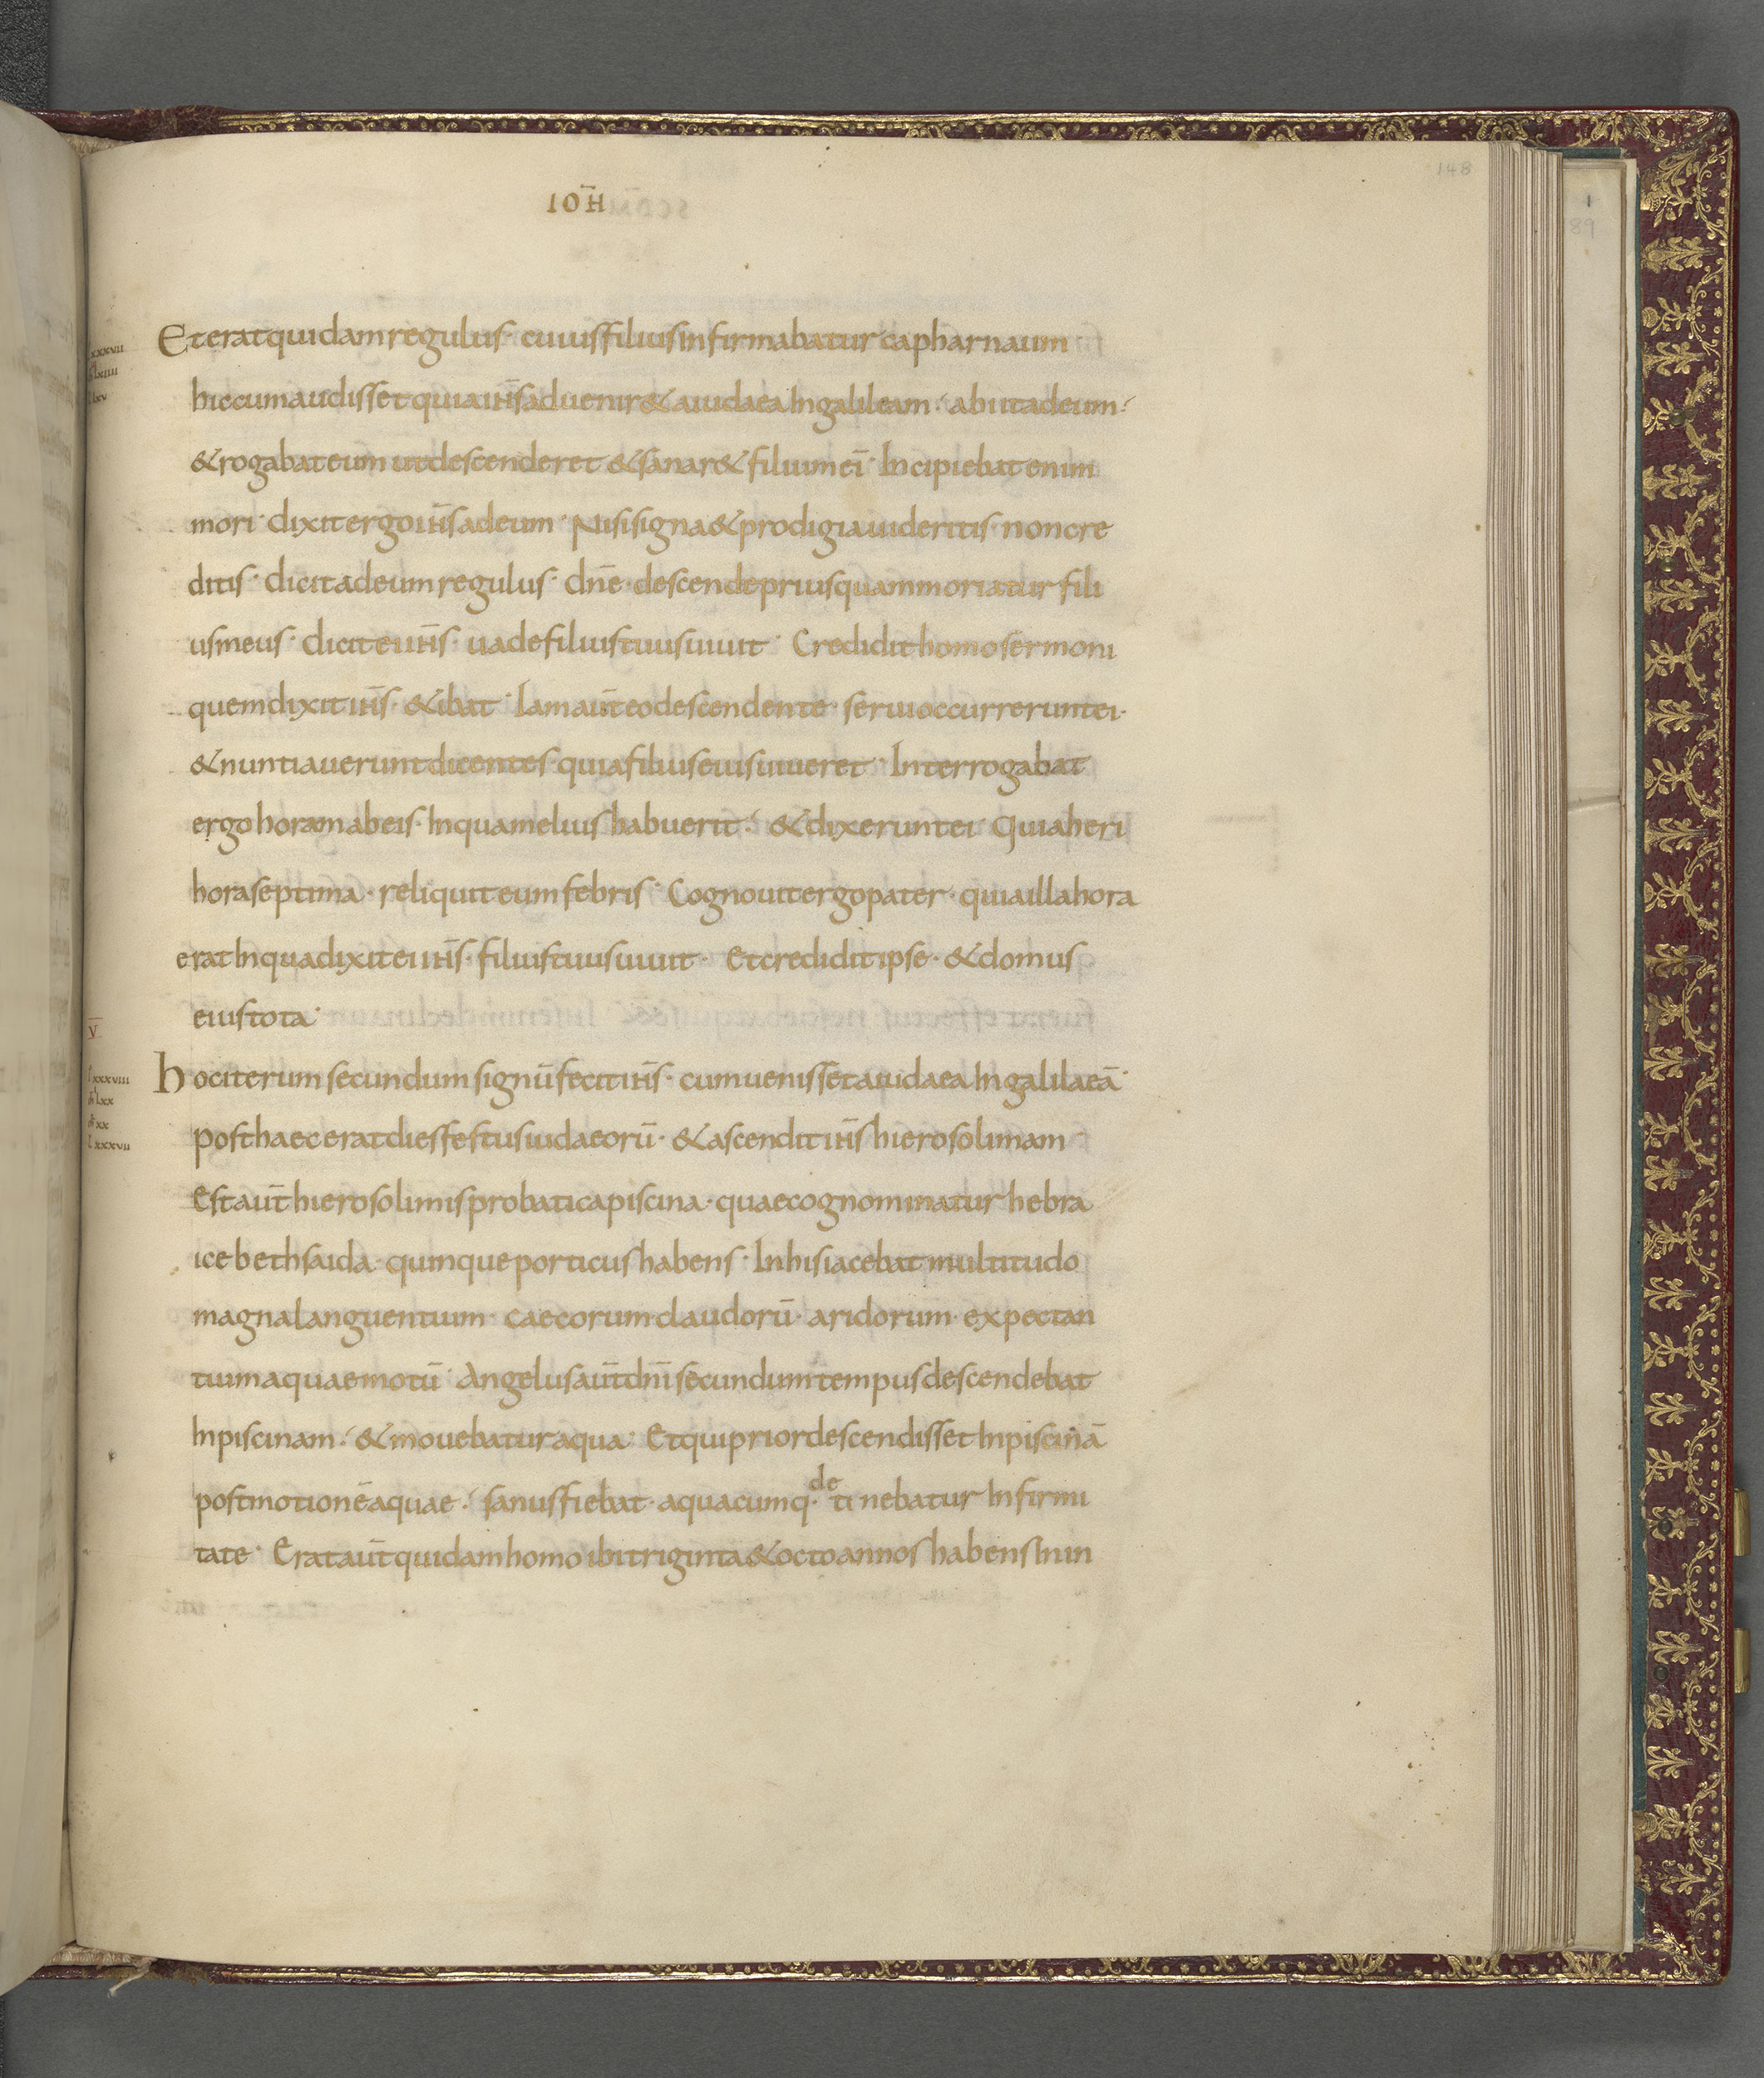 148
IOH̄
Et erat quidam regulus· cuius filius infirmabatur capharnaum
xxxvii
hic cum audisset quia ih̄s advenir& a iudaea In galileam· abiit ad eum·
& rogabat eum ut descenderet & sanar& filium eī· Incipiebat enim
mori· dixit ergo ih̄s ad eum· Nisi signa & prodigia uideritis· non cre
ditis· dicit ad eum regulus· dn̄e· descende priusquam moriatur fili
us meus· dicit ei ih̄s· uade filius tuus uiuit· Credidit homo sermoni
quem dixit ih̄s· & ibat· Iam aūt eo descendente· serui occurrerunt ei·
& nuntiauerunt dicentes· quia filius eius uiueret· Interrogabat
ergo horam ab eis· In qua melius habuerit· & dixerunt ei Quia heri
hora septima· reliquit eum febris· Cognouit ergo pater· quia illa hora
erat In qua dixit ei ih̄s· filius tuus uiuit· Et credidit ipse· & domus
eius tota·
V
hoc iterum secundum signū fecit ih̄s· cum uenisset a iudaea In galilaeā·
lxxxviii
lxx
xx
lxxxvii
post haec erat dies festus iudaeorū· & ascendit ih̄s hierosolimam
Est aūt hierosolimis probatica piscina· quae cognominatur hebra
ice bethsaida· quinque porticus habens· In his iacebat multitudo
magna languentium· caecorum claudorū· aridorum· expectan
tium aquae motū· Angelus aūt dn̄i secundum tempus descendebat
In piscinam· & mouebatur aqua· Et qui prior descendisset In piscinā
post motionē aquae· sanus fiebat· a quacumq· de tinebatur Infirmi
tate· Erat aūt quidam homo ibi triginta & octo annos habens In in